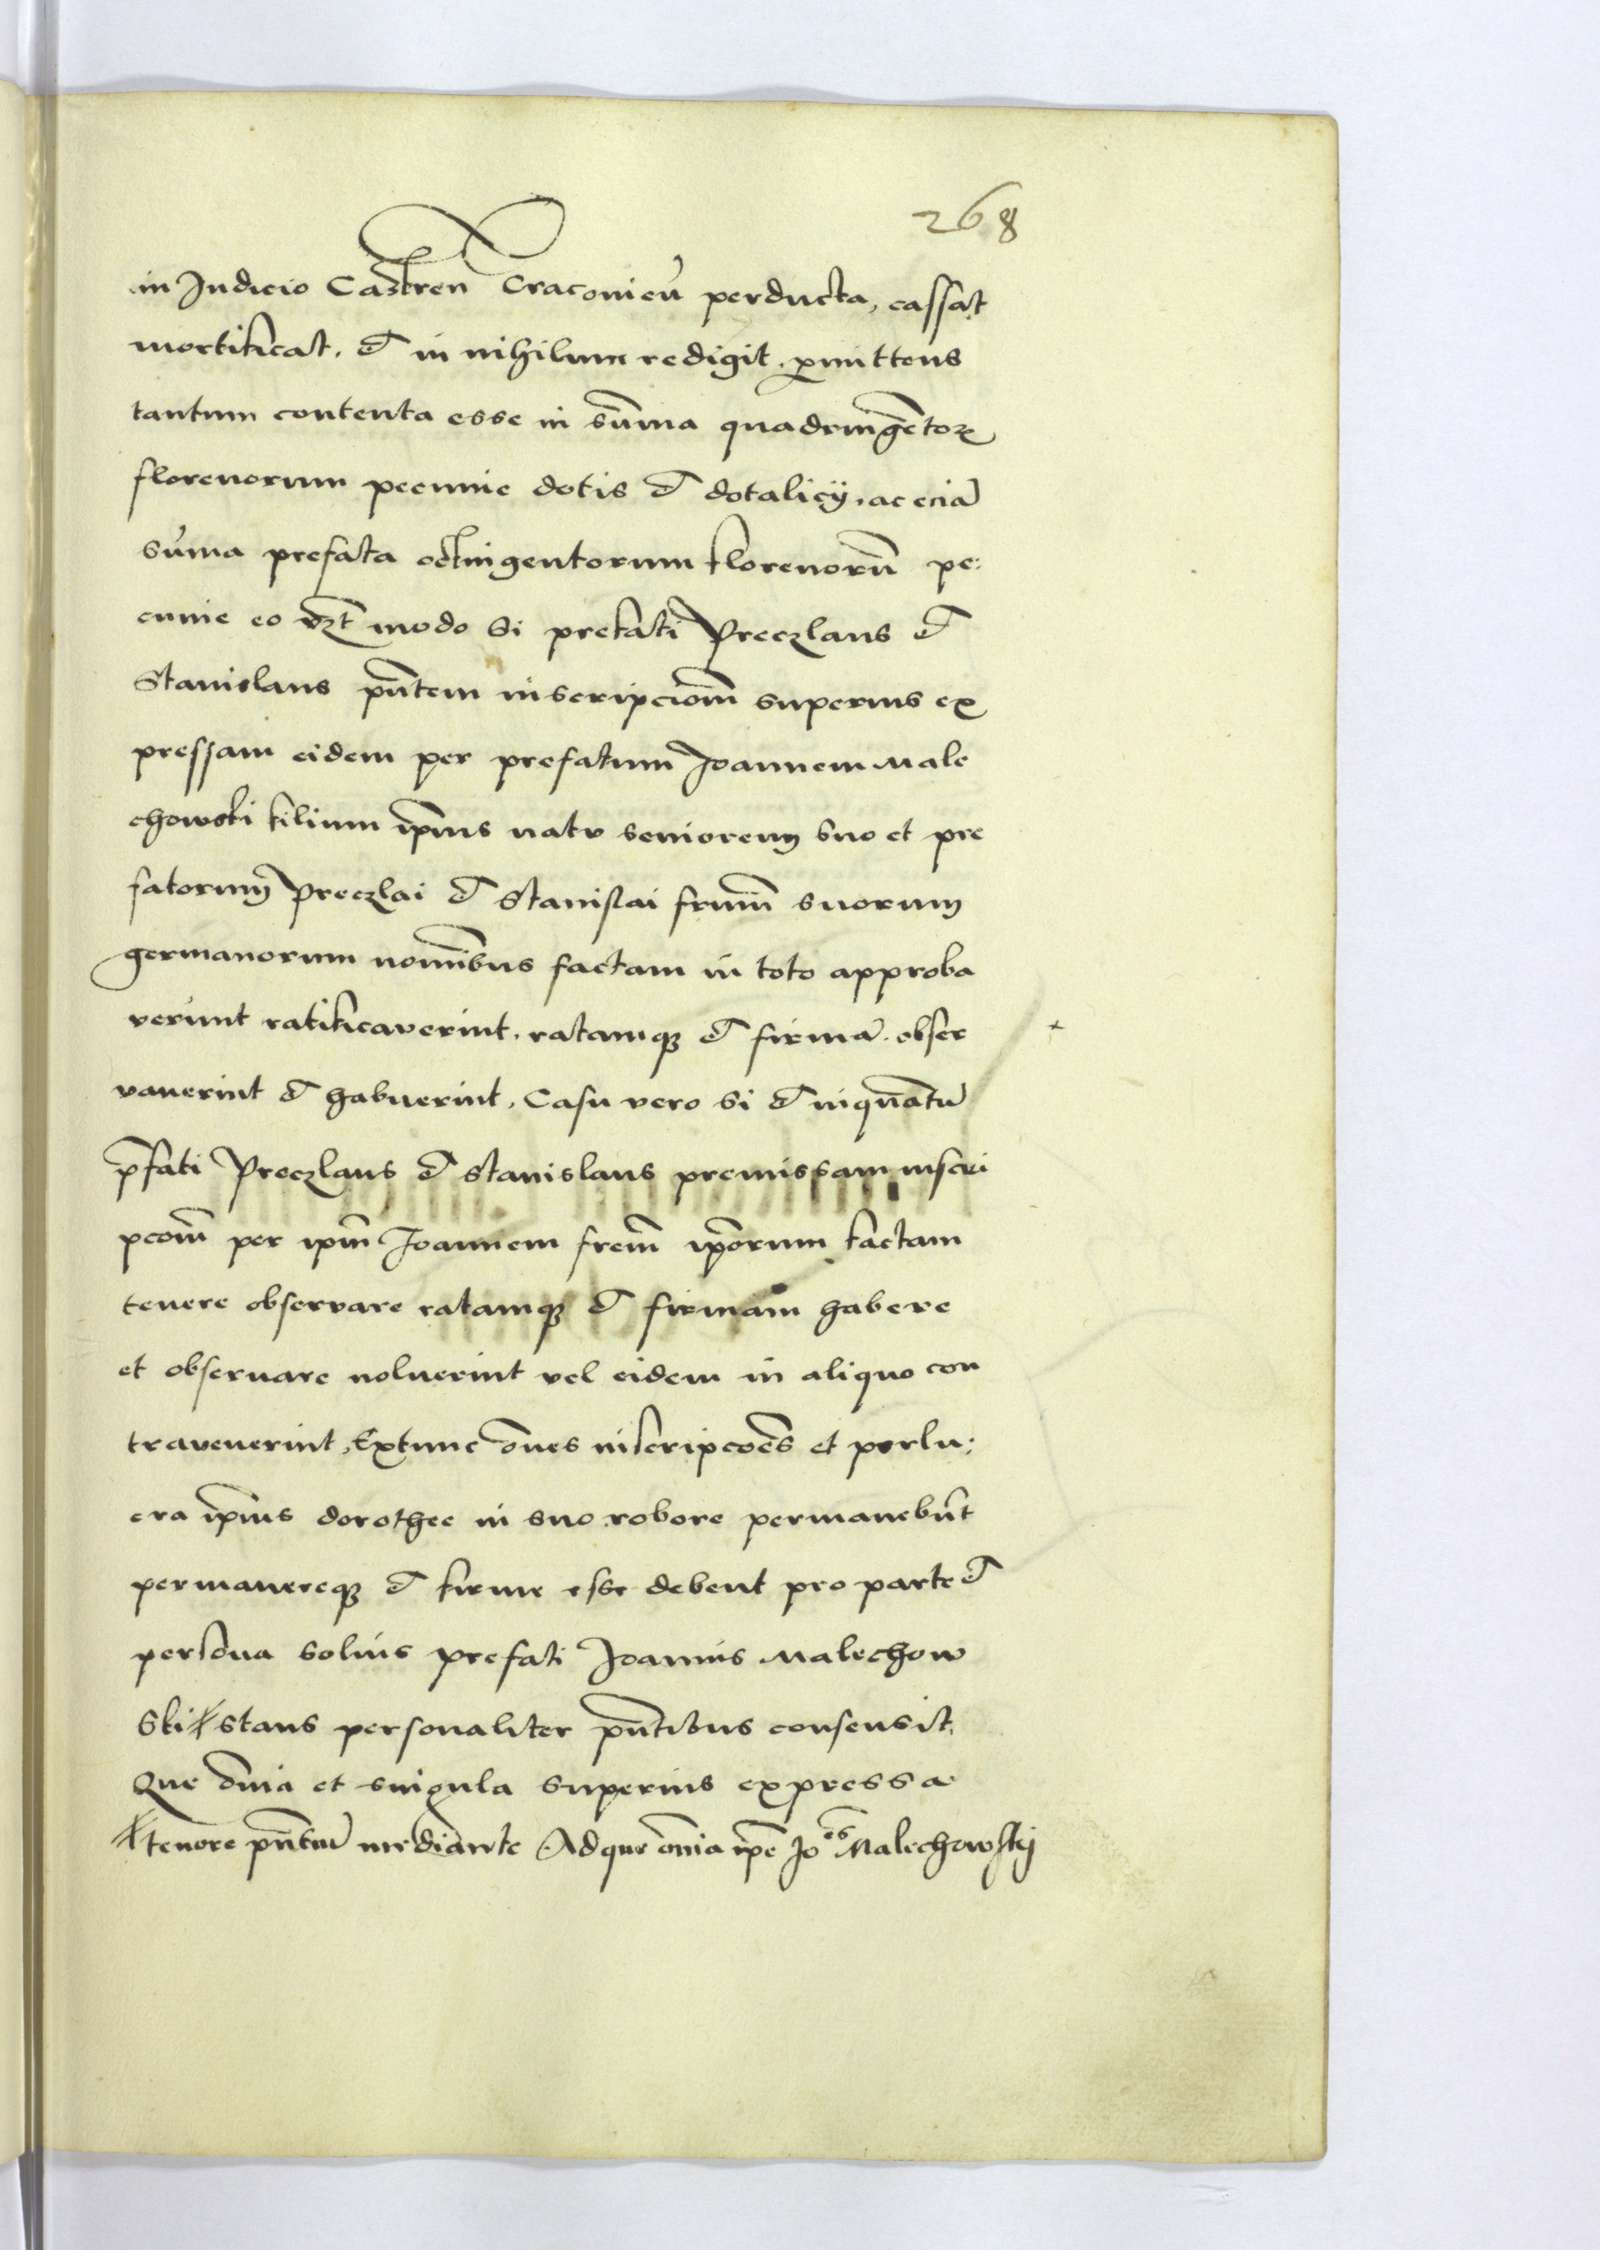 268
in Judicio Castren Cracovieñ perducta, cassat
mortificat, et in nihilum redigit, p̱mittens
tantum contenta esse in sūma quadringētoꝝ
florenorum pecunie dotis et dotalicij, ac eciā
sūma prefata octingentorum florenorū pe:
cunie eo vꝫt modo Si prefati Preczlaus et
Stanislaus pñtem inscripcioñm superius ex
pressam eidem per prefatum Joannem Male
chowski filium ip̄ius natu seniorem suo et pre
fatorum Preczlai et Stanislai frūm suorum
germanorum nominībus factam in toto approba
verunt ratificaverint, ratamqꝫ et firmā obser
vaverint et habuerint, Casu vero Si et inquātū
p̄fati Preczlaus et Stanislaus premissam inscri
pcoēm per ipm̄ Joannem frem̄ ip̄orum factam
tenere observare ratamqꝫ et firmam habere
et observare noluerint vel eidem in aliquo con
travenerint, Extunc ōnes inscripcoēs et perlu:
cra ip̄ius dorothee in suo robore permanebūt
permanereqꝫ et firme esse debent pro parte et
persona solius prefati Joannis Malechow
Ski stans personaliter pñtibus consensit,
Que ōnia et singula superius expressa
tenore pñtium mediante Ad que ōnia ip̄e Joes Malechowskij